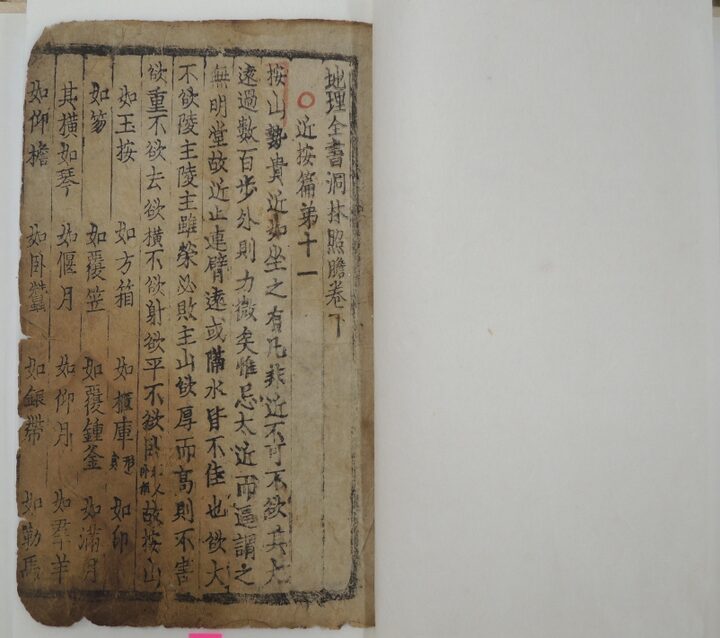 地理全書洞林照膽卷下
近按篇弟十一
按山勢貴近如坐之有几非近不可不欲其大
遠過數百步外則力微矣惟忌太近而逼謂之
無明堂故近止連臂遠或隔水皆不佳也欲大
不欲陵主陵主雖榮必敗主山欲厚而高則不害
欲重不欲去欲橫不欲射欲平不欲臥故按山
如玉按 如方箱 如櫃庫 如印
如笏 如覆笠 如覆鍾釜 如滿月
其橫如琴 如偃月 如仰月 如羣羊
如仰檐 如臥蠶 如銀帶 如勒馬